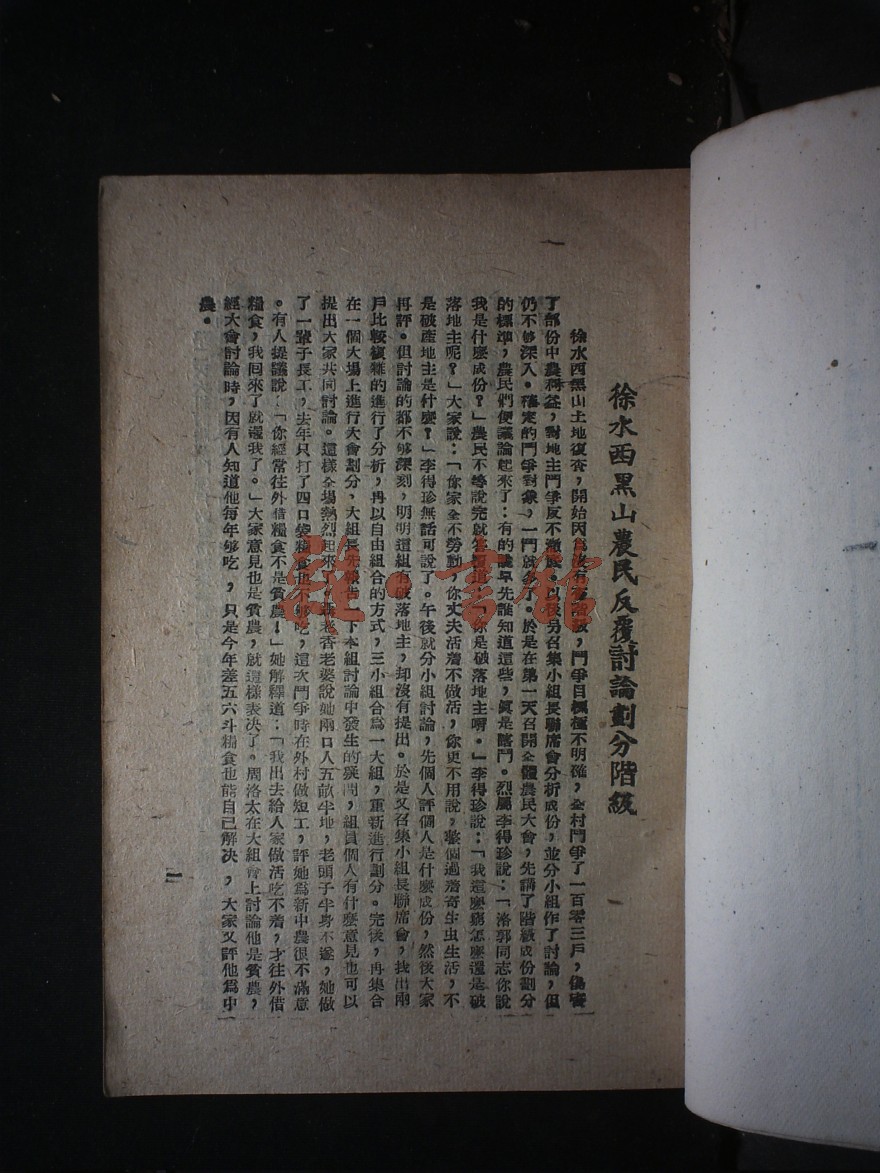 徐水西黑山農民反覆討論劃分階級
徐水西黑山土地復查，開始因爲沒有查階級，鬥爭目標極不明確，全村鬥爭了一百零三戶，傷害
了部份中農利益，對地主鬥爭反不澈底。以後另召集小組長聯席會分析成份，並分小組作了討論，但
仍不够深入。確定的鬥爭對象，一鬥就多了。於是在第一天召開全體農民大會，先講了階級成份劃分
的標準，農民們便議論起來了：有的嚷早先誰知道這些，眞是瞎鬥。烈屬李得珍說：「洛郭同志你說
我是什麽成份？」農民不等說完就答覆道：「你是破落地主啊。」李得珍說：「我這麽窮怎麽還是破
落地主呢？」大家說：「你家全不勞動，你丈夫活着不做活，你更不用說，整個過着寄生虫生活，不
是破產地主是什麽？」李得珍無話可說了。午後就分小組討論，先個人評個人是什麽成份，然後大家
再評。但討論的都不够深刻，明明這組有破落地主，却沒有提出。於是又召集小組長聯席會，找出兩
戶比較複雜的進行了分析，再以自由組合的方式，三小組合爲一大組，重新進行劃分。完後，再集合
在一個大場上進行大會劃分，大組長先報告一下本組討論中發生的疑問，組員個人有什麽意見也可以
提出大家共同討論。這樣全場熱烈起來了，老杏老婆說她兩口人五畝半地，老頭子半身不遂，她做
了一輩子長工，去年只打了四口袋糧食也不够吃，這次鬥爭時在外村做短工，評她爲新中農很不滿意
。有人提議說：「你經常往外借糧食不是貧農！」她解釋道：「我出去給人家做活吃不着，才往外借
糧食，我回來了就還我了。」大家意見也是貧農，就這樣表决了。周洛太在大組會上討論他是貧農，
經大會討論時，因有人知道他每年够吃，只是今年差五六斗糧食也能自己解决，大家又評他爲中
農。
一